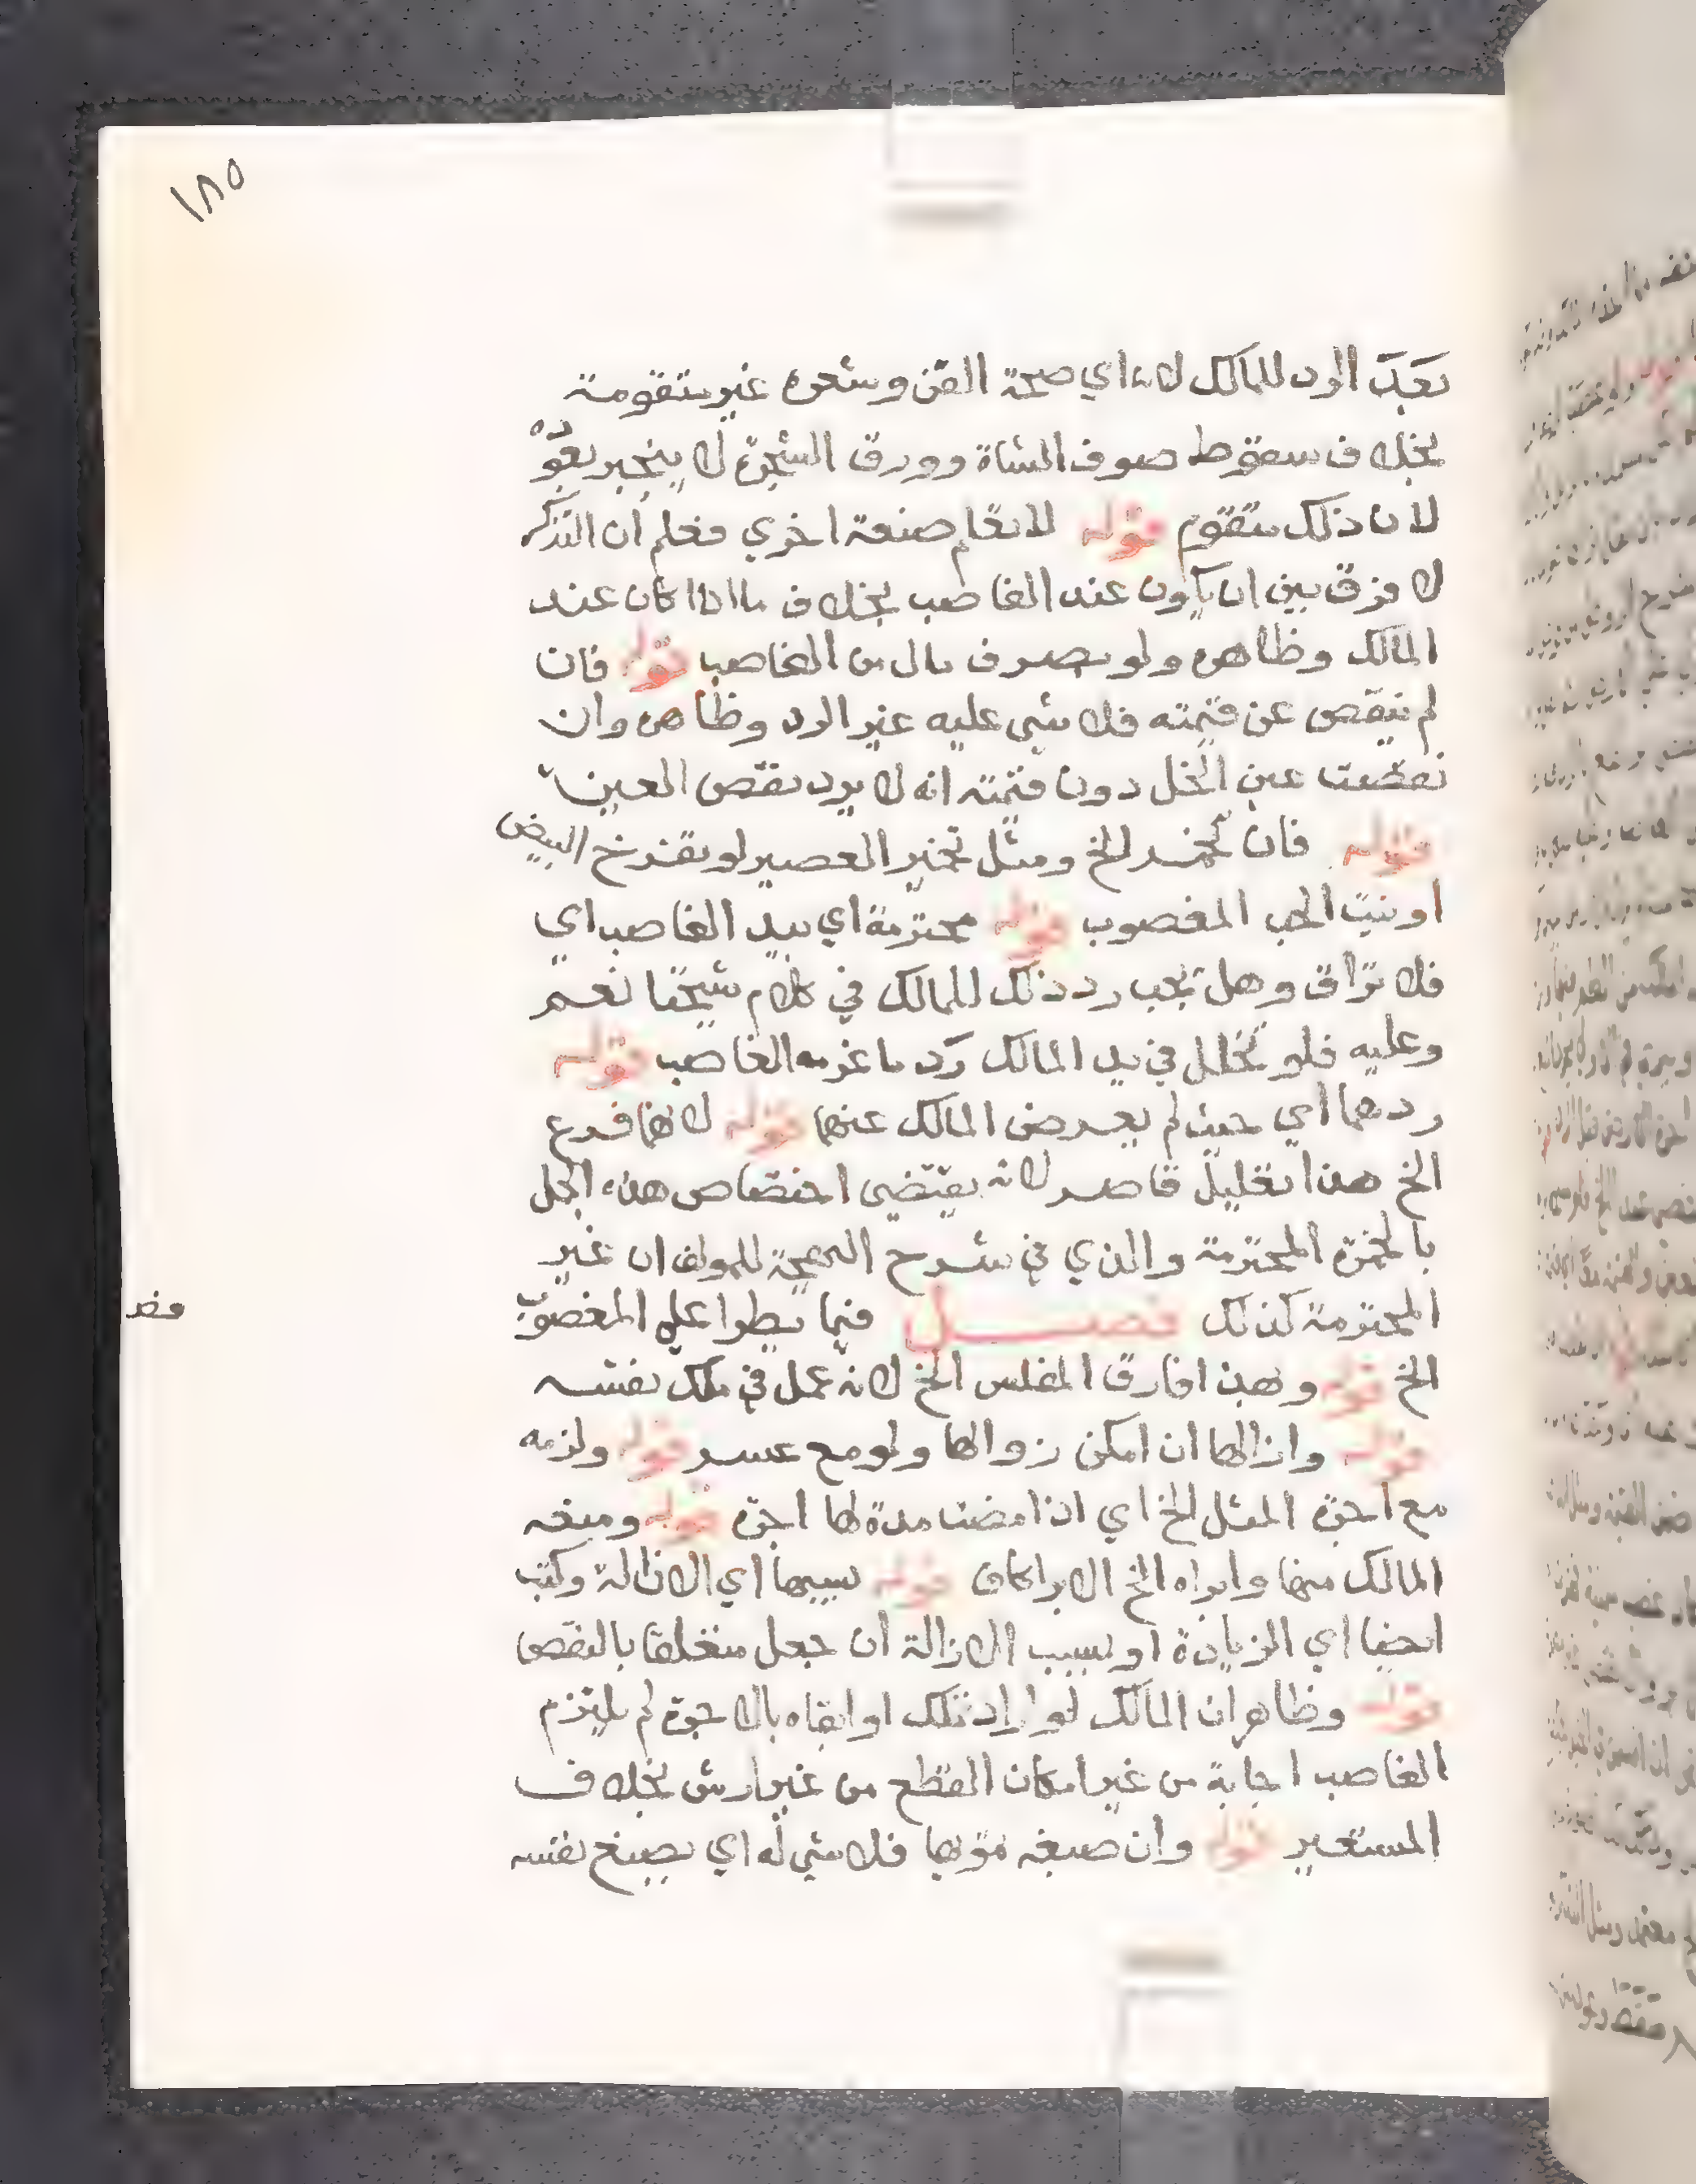 ١٨٥
بعد الرد للمالك لانه اي صحة القن وشعره غير متقومة
بخلاف سقوط صوف الشاة وورق الشجرة لا ينجبر بعوده
لان ذلك متقوم قوله لا تعلم صنعة اخري فعلم ان التذكر
لا فرق بين ان يكون عند الغاصب بخلاف ما اذا كان عند
المالك وظاهره ولو بصرف مال من الغاصب قوله فان
لم ينقص عن قيمته فلا شي عليه غير الرد وظاهره وان
نقصت عين الخل دون قيمته انه لا يرد نقص العين
قوله فان تخمر الخ ومثل تخمر العصير لو تفرخ البيض
او نبت الحب المغصوب قوله محترمة اي بيد الغاصب اي
فلا تراق وهل يجب رد ذلك للمالك في كلام شيخنا نعم
وعليه فلو تخلل في يد المالك رد ما غرمه الغاصب قوله
ردهما اي حيث لم يعرض المالك عنهما قوله لانهما فرع
الخ هذا تعليل قاصر لانه يقتضي اختصاص هذه الخل
بالخمرة المحترمة والذي في شرح البهجة للمولف ان غير
المحترمة كذلك فصل فيما يطرا علي المغصوب
فصل
الخ قوله وبهذا فارق المفلس الخ لانه عمل في ملك نفسه
قوله وازالها ان امكن زوالها ولو مع عسر قوله ولزمه
مع اجرة المثل الخ اي اذا مضت مدة لها اجرة قوله ومنعه
المالك منها وابراه الخ الابرا كاف قوله بسببها اي الازالة وكتب
ايضا اي الزيادة او بسبب الازالة ان جعل متعلقا بالنقص
قوله وظاهر ان المالك لو اراد تملك او ابقاه بالاجرة لم يلتزم
الغاصب اجابة من غير امكان القطع من غير ارش بخلاف
المستعير قوله وان صبغه تمويها فلا شي له اي بصبغ نفسه